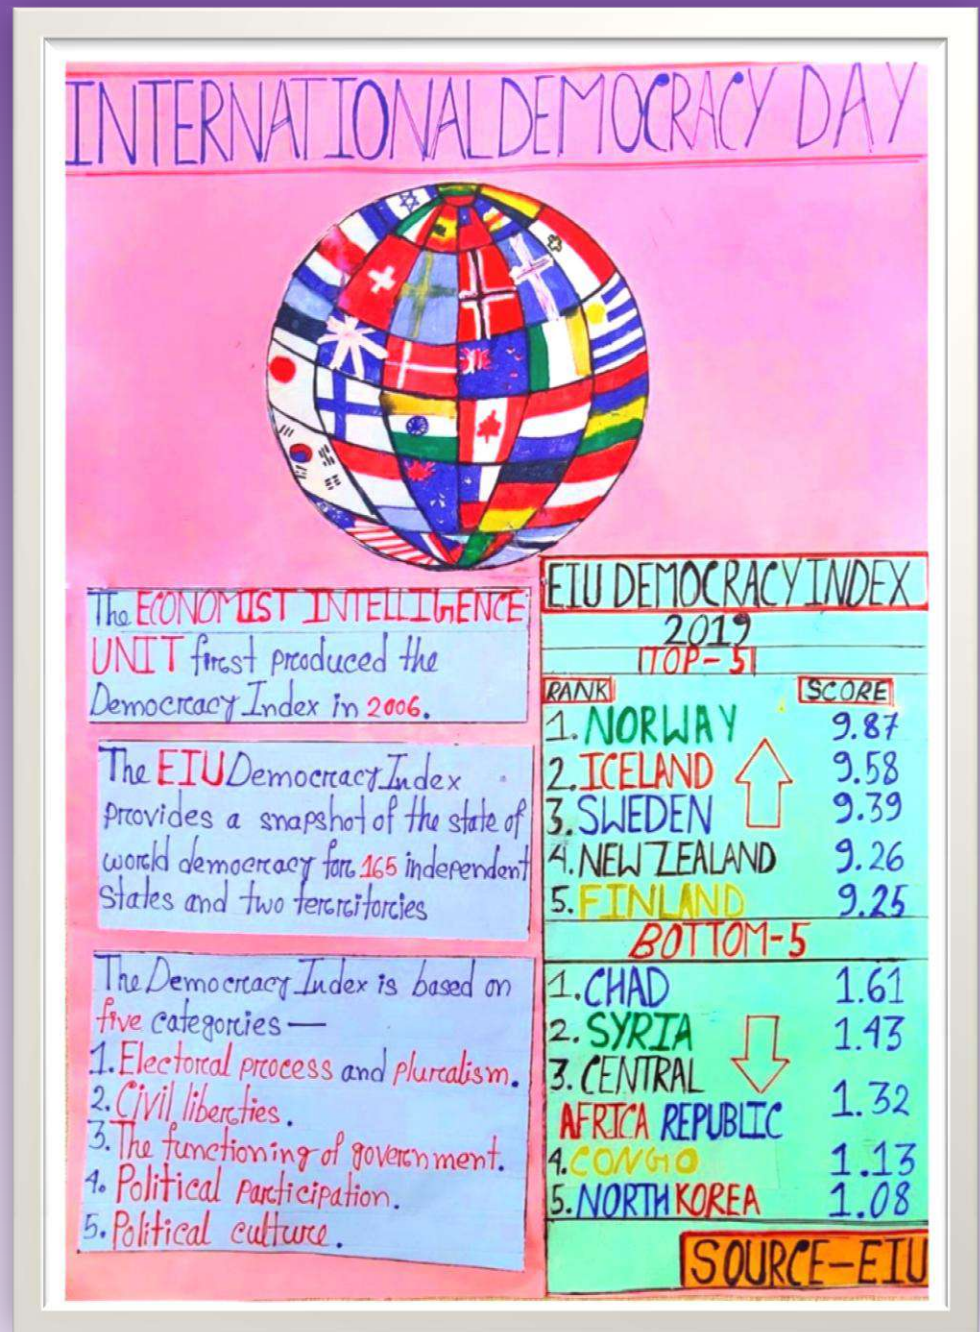 INTERNATIONAL DEMOCRACY DAY
The ECONOMIST INTELLIGENCE
UNIT first produced the
Democracy Index in 2006.
The EIU Democracy Index
Provides a snapshot of the state of
world democracy for 165 independent
States and two territories
The Democracy Index is based on
five categories—
1. Electoral process and pluralism.
2. Civil liberties.
3. The functioning of government.
4. Political Participation.
5. Political culture.
EIU DEMOCRACY INDEX
2019
TOP-5
RANK SCORE
1. NORWAY 9.87
2. ICELAND 9.58
3. SWEDEN 9.39
4. NEW ZEALAND 9.26
5. FINLAND 9.25
BOTTOM-5
1. CHAD 1.61
2. SYRIA 1.43
3. CENTRAL
AFRICA REPUBLIC 1.32
4. CONGO 1.13
5. NORTH KOREA 1.08
SOURCE-EIU